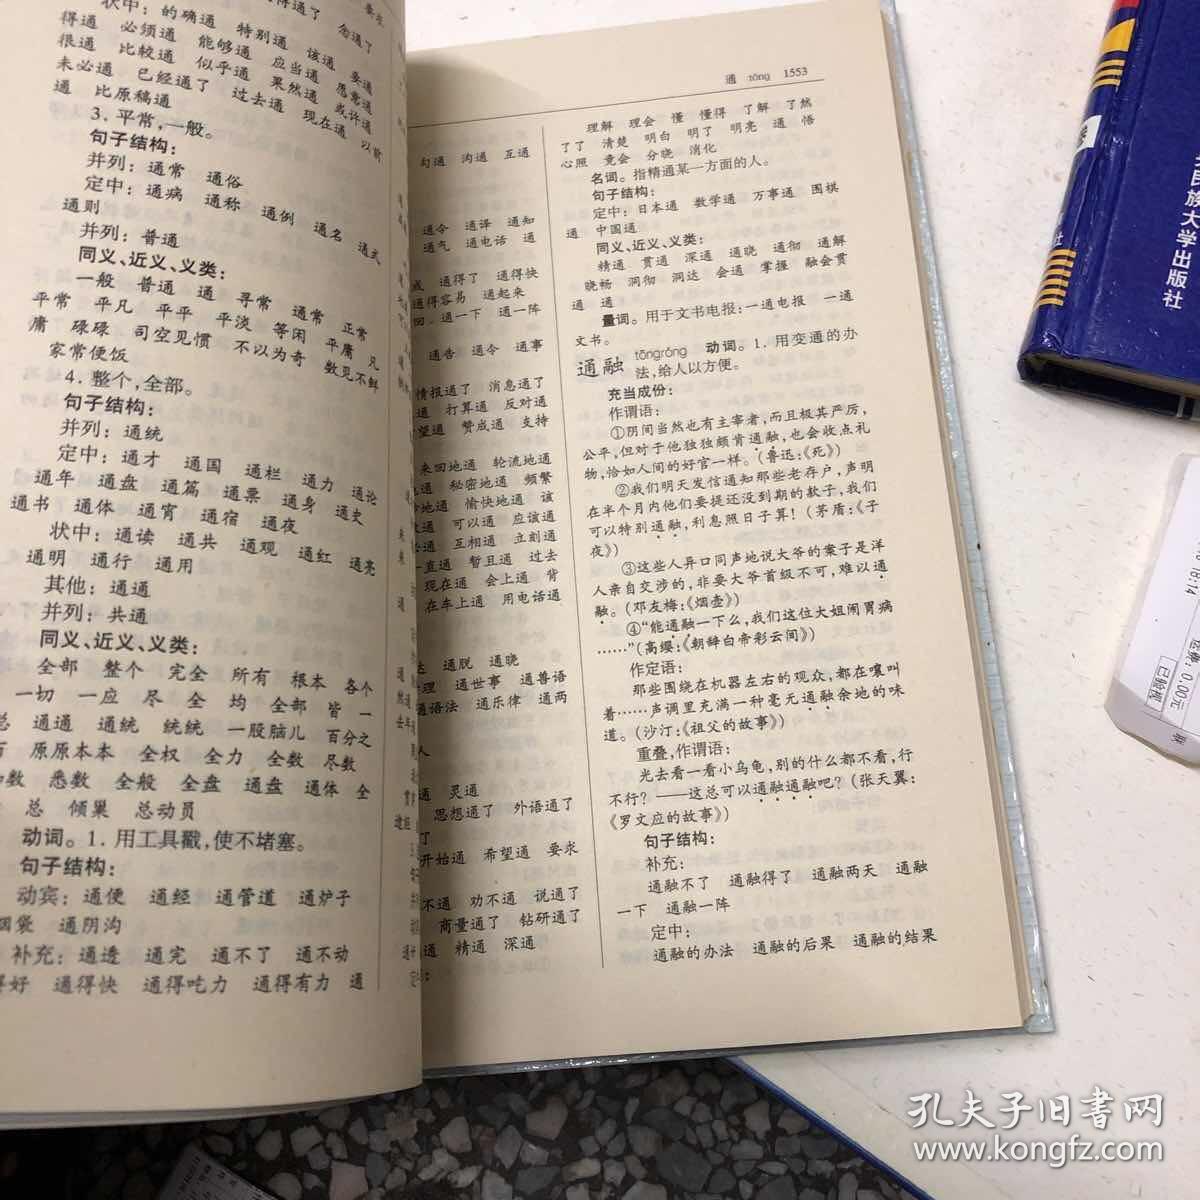 状中：的确通 特别通 该通 要通
得通 必须通 能够通 应当通 愿意通
很通 比较通 似乎通 果然通 或许通
未必通 已经通了 过去通 现在通 以前
通 比原稿通
3. 平常,一般。
句子结构：
并列：通常 通俗
定中：通病 通称 通例 通名 通式
通则
并列：普通
同义、近义、义类：
一般 普通 通 寻常 通常 正常
平常 平凡 平平 平淡 等闲 平庸 凡
庸 碌碌 司空见惯 不以为奇 数见不鲜
家常便饭
4. 整个,全部。
句子结构：
并列：通统
定中：通才 通国 通栏 通力 通论
通年 通盘 通篇 通票 通身 通史
通书 通体 通宵 通宿 通夜
状中：通读 通共 通观 通红 通亮
通明 通行 通用
其他：通通
并列：共通
同义、近义、义类：
全部 整个 完全 所有 根本 各个
一切 一应 尽 全 均 全部 皆 一
总 通通 通统 统统 一股脑儿 百分之
原原本本 全权 全力 全数 尽数
悉数 全般 全盘 通盘 通体 全
总 倾巢 总动员
动词。1. 用工具戳,使不堵塞。
句子结构：
动宾：通便 通经 通管道 通炉子
烟袋 通阴沟
补充：通透 通完 通不了 通不动
得好 通得快 通得吃力 通得有力 通
通 tōng 1553
勾通 沟通 互通
通令 通译 通知
通气 通电话 通
成 通得了 通得快
通得容易 通起来
回 通一下 通一阵
通告 通令 通事
情报通了 消息通了
通 打算通 反对通
望通 赞成通 支持
来回地通 轮流地通
通 秘密地通 频繁
地通 愉快地通 该
通 可以通 应该通
必通 互相通 立刻通
一直通 暂且通 过去
现在通 会上通 背
在车上通 用电话通
达 通脱 通晓
理 通世事 通兽语
通语法 通乐律 通两
人
通 灵通
思想通了 外语通了
了
开始通 希望通 要求
不通 劝不通 说通了
商量通了 钻研通了
通 精通 深通
理解 理会 懂 懂得 了解 了然
了了 清楚 明白 明了 明亮 通 悟
心照 竟会 分晓 消化
名词。指精通某一方面的人。
句子结构：
定中：日本通 数学通 万事通 围棋
通 中国通
同义、近义、义类：
精通 贯通 深通 通晓 通彻 通解
晓畅 洞彻 洞达 会通 掌握 融会贯
通 通
量词。用于文书电报：一通电报 一通
文书。
通融 tōngróng 动词。1. 用变通的办
法,给人以方便。
充当成份：
作谓语：
①阴间当然也有主宰者,而且极其严厉,
公平,但对于他独独颇肯通融,也会收点礼
物,恰如人间的好官一样。(鲁迅：《死》)
②我们明天发信通知那些老存户,声明
在半个月内他们要提还没到期的款子,我们
可以特别通融,利息照日子算！(茅盾：《子
夜》)
③这些人异口同声地说大爷的案子是洋
人亲自交涉的,非要大爷首级不可,难以通
融。(邓友梅：《烟壶》)
④“能通融一下么,我们这位大姐闹胃病
……”(高缨：《朝辞白帝彩云间》)
作定语：
那些围绕在机器左右的观众,都在嚷叫
着……声调里充满一种毫无通融余地的味
道。(沙汀：《祖父的故事》)
重叠,作谓语：
光去看一看小乌龟,别的什么都不看,行
不行？——这总可以通融通融吧？(张天翼：
《罗文应的故事》)
句子结构：
补充：
通融不了 通融得了 通融两天 通融
一下 通融一阵
定中：
通融的办法 通融的后果 通融的结果
民族大学出版社
18:14
0.00元
已验视
孔夫子旧书网
www.kongfz.com